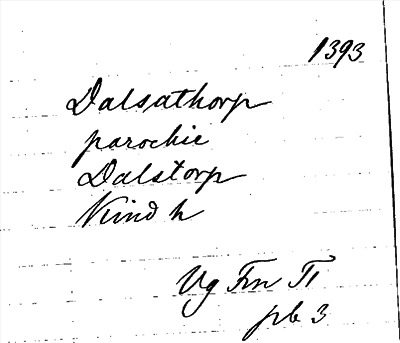 1393
Dalsathorp
parochie
Dalstorp
Kind h
Vg Frn II
pb 3